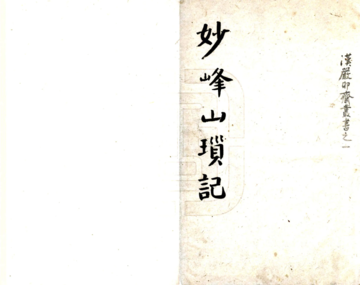 漢嚴卯齋叢書之一
妙峰山瑣記